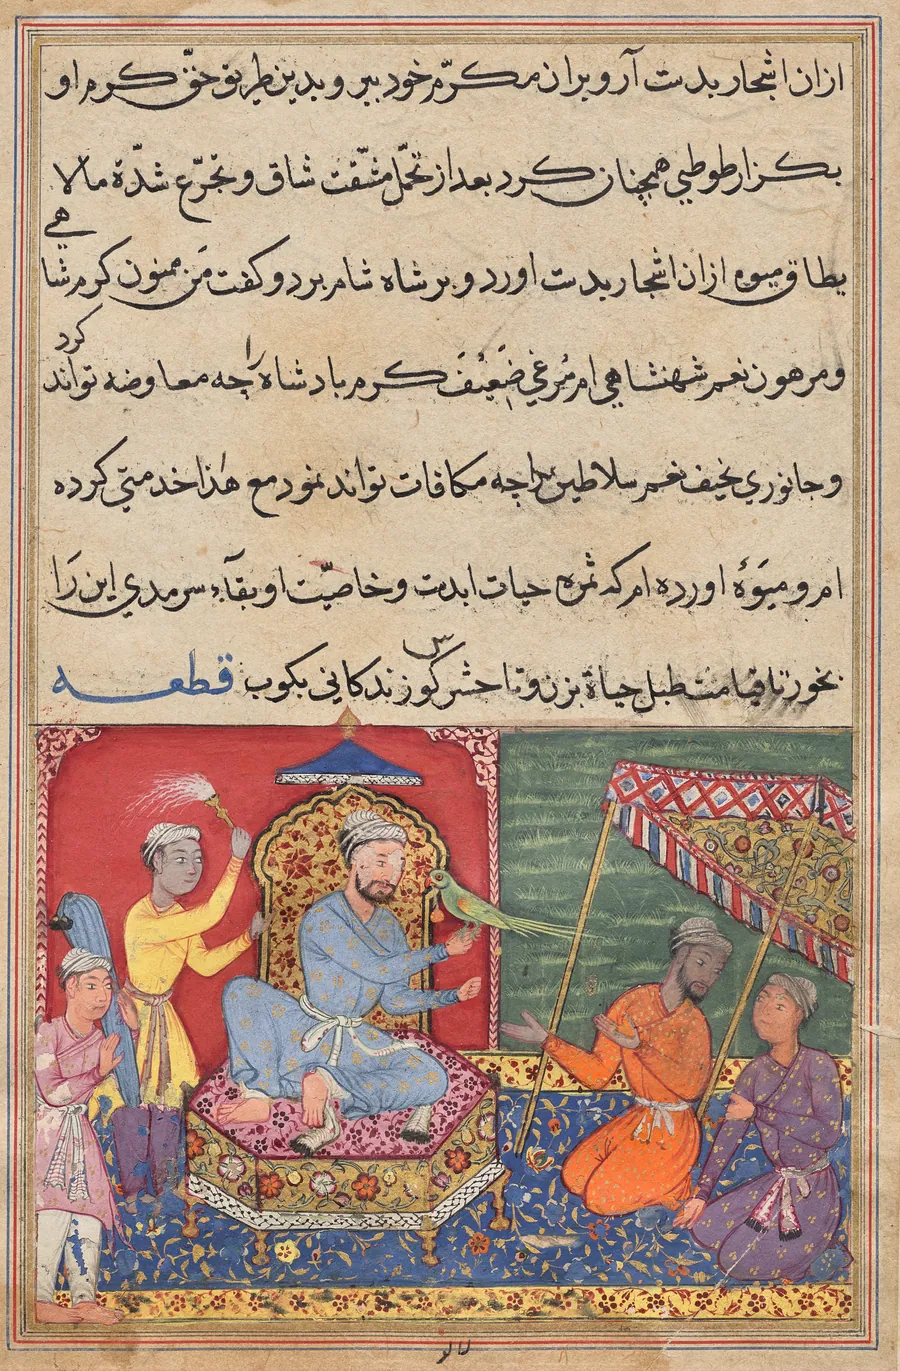 ازان اشجار بدست آر و بران مكرّم خود ببر و بدين طريق حقّ كرم او
بكزار طوطي همچنان كرد بعد از تحمّل مشّقت شاق و تجرّع شدّة مالا
يطاق ميوه ازان اشجار بدست اورد و بر شاه شام برد و كفت من ممنون كرم شا
هي
و مرهون نعم شهنشاهي ام مُرغي ضَعيُفَ كرم بادشاه را چه معاوضه تواند
كرد
و جانوري نحيف نعم سلاطين را چه مكافات تواند نمود مع هٰذا خدمتي كرده
ام و ميَوَۀ اورده ام كه ثمره حيات ابدست و خاصيّت او بقآء سرمدي اين رَا
بخور تا قيامت طبل حياة بزن و تا حشر كوس زندكاني بكوب قطعه